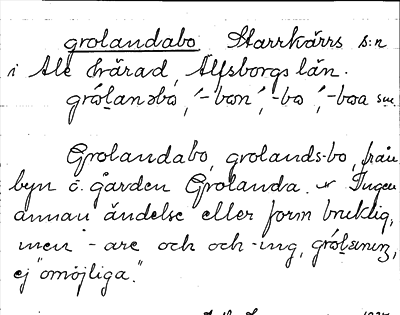 grolandabo Starrkärrs s:n
i Ale härad, Älfsborgs län.
gróḷanəbo, ′-bon′, -bo, ′-boa
Grolandabo, grolands-bo, från
byn o. gården Grolanda. Ingen
annan ändelse eller form bruklig,
men -are och och -ing, gróḷanıŋ,
ej "omöjliga."